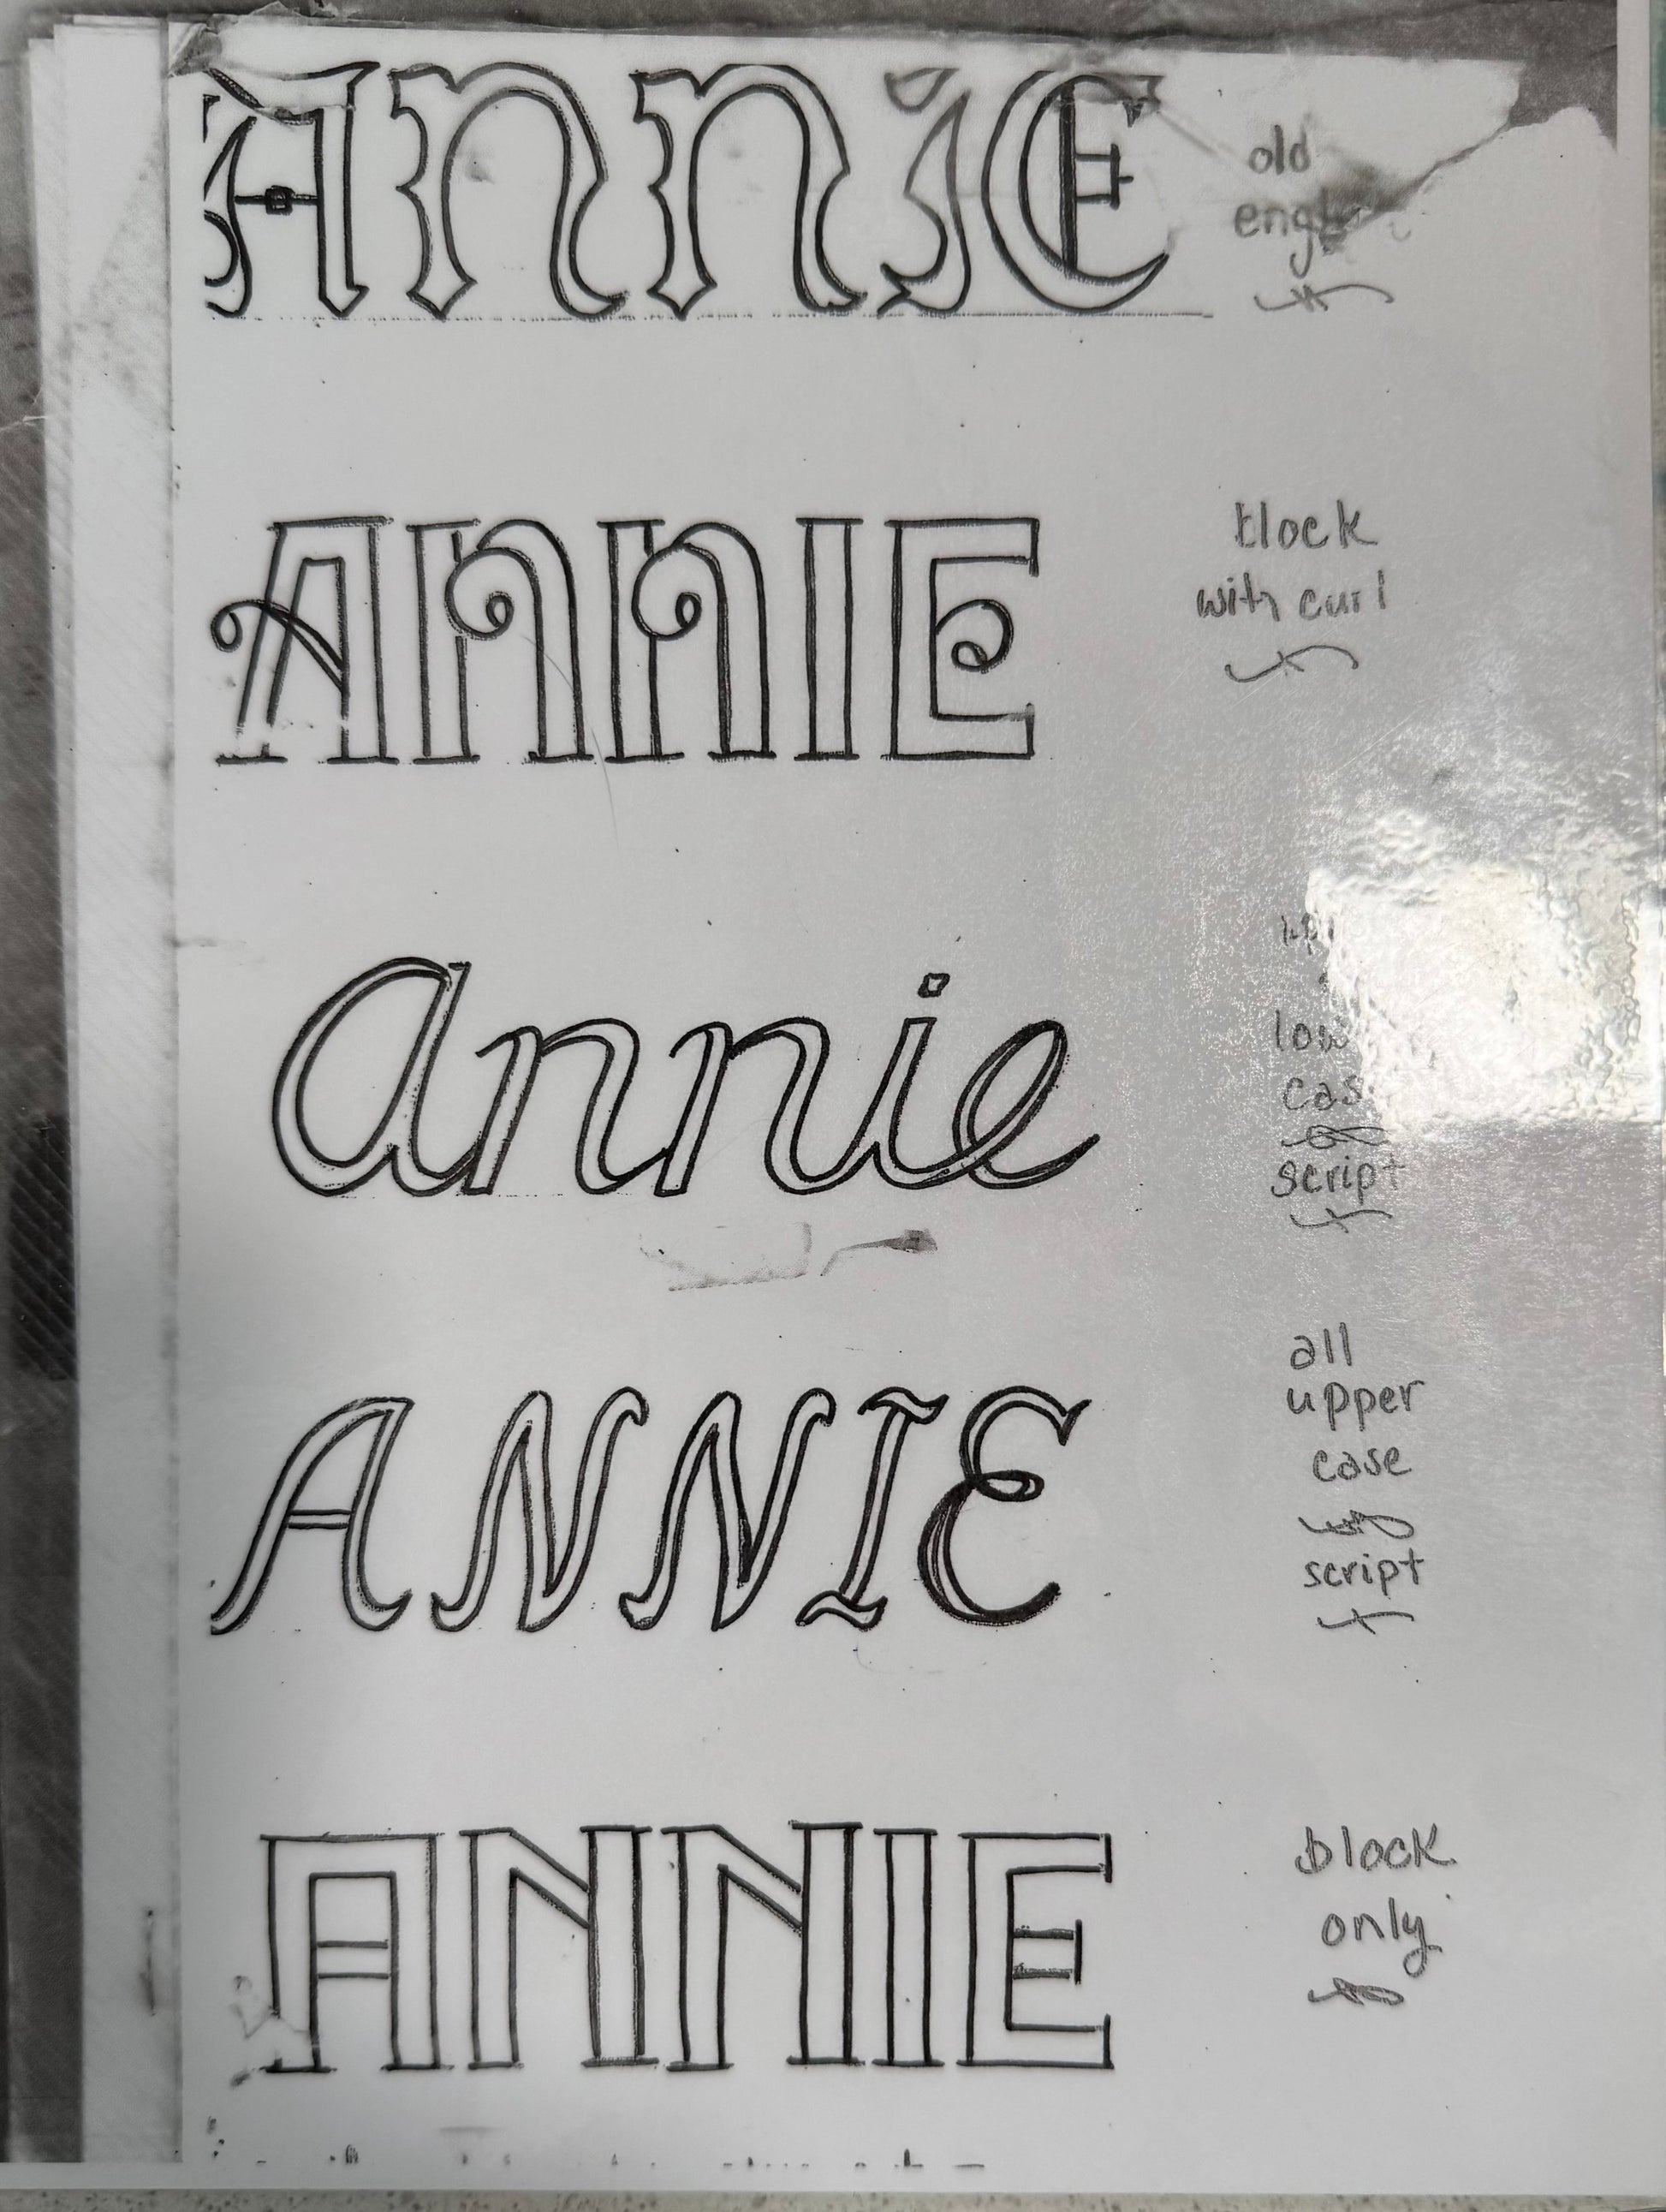 AnniE
old
AnnIE
block
with curl
Annie
case
script
ANNIE
all
upper
case
script
ANNIE
block
only